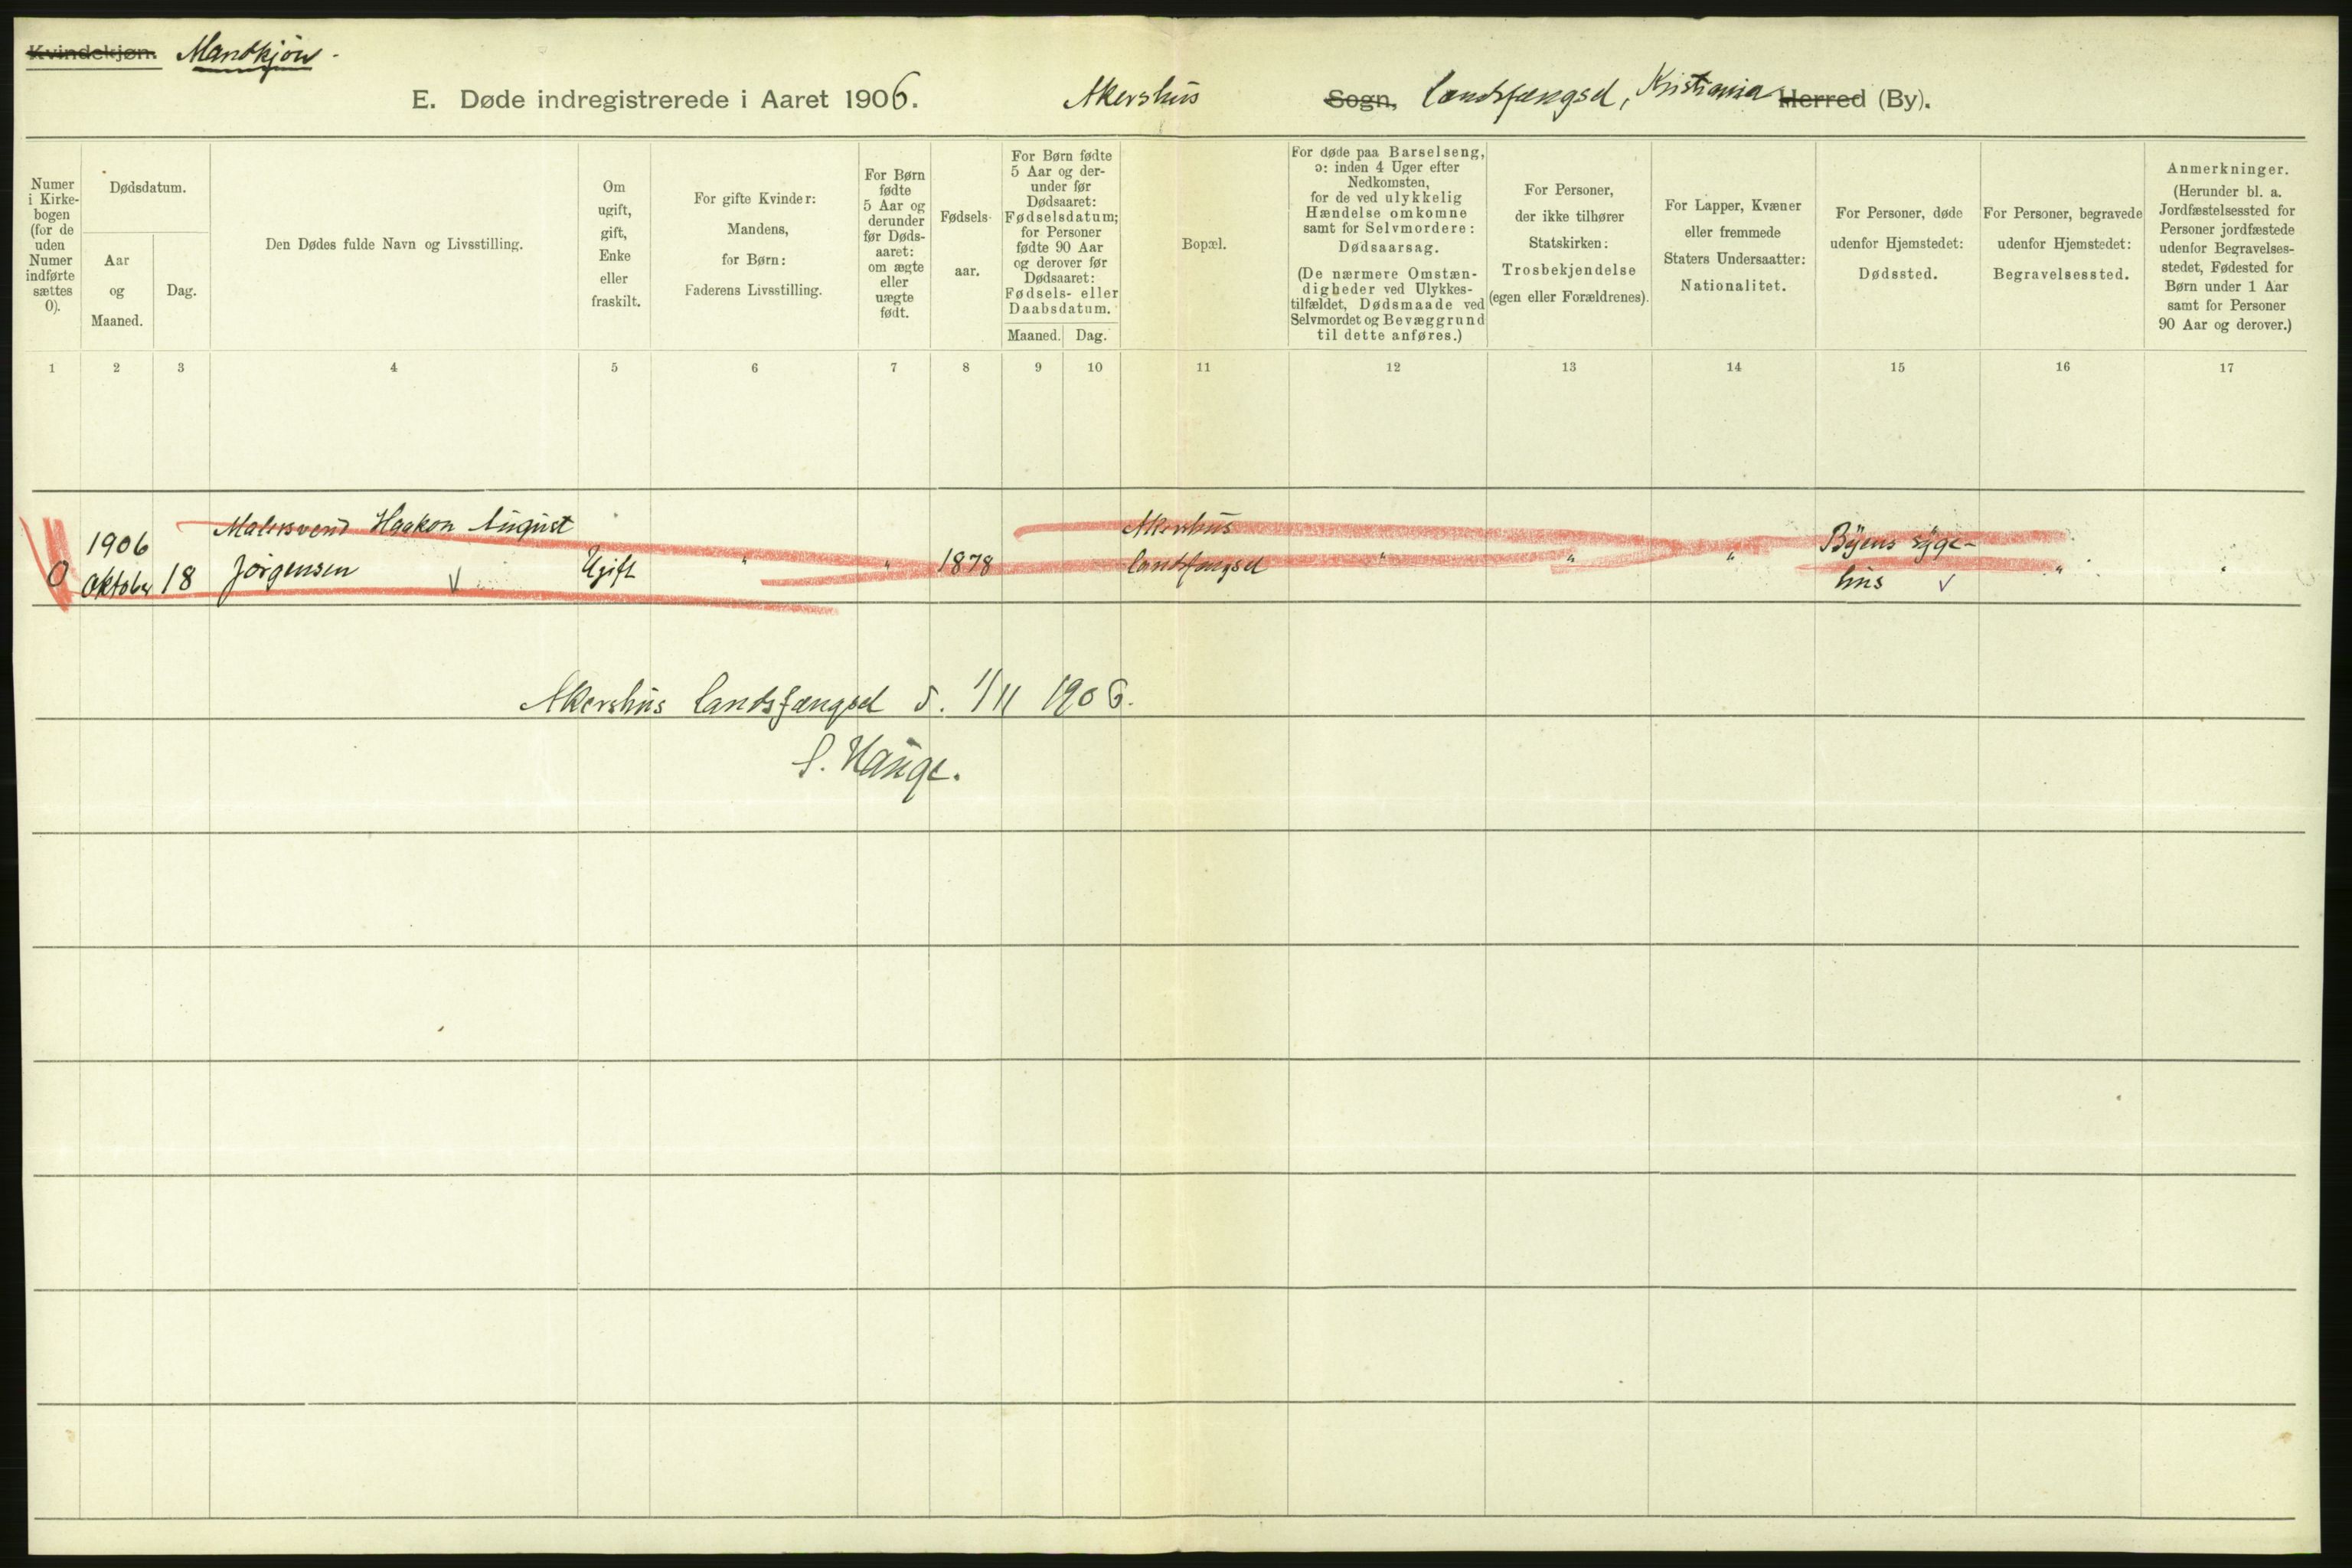 Kvindekjøn. Mandkjøn.
E. Døde indregistrerede i Aaret 1906. Akershus Sogn, Landsfængsel, Kristiania Herred (By).
Numer
i Kirke-
bogen
(for de
uden
Numer
indførte
sættes
0).
Dødsdatum.
Aar
og
Maaned.
Dag.
Den Dødes fulde Navn og Livsstilling.
Om
ugift,
gift,
Enke
eller
fraskilt.
For gifte Kvinder:
Mandens,
for Børn:
Faderens Livsstilling.
For Børn
fødte
5 Aar og
derunder
før Døds-
aaret:
om ægte
eller
uægte
født.
Fødsels-
aar.
For Børn fødte
5 Aar og der-
under før
Dødsaaret:
Fødselsdatum;
for Personer
fødte 90 Aar
og derover før
Dødsaaret:
Fødsels- eller
Daabsdatum.
Maaned. Dag.
Bopæl.
For døde paa Barselseng,
ɔ: inden 4 Uger efter
Nedkomsten,
for de ved ulykkelig
Hændelse omkomne
samt for Selvmordere:
Dødsaarsag.
(De nærmere Omstæn-
digheder ved Ulykkes-
tilfældet, Dødsmaade ved
Selvmordet og Bevæggrund
til dette anføres.)
For Personer,
der ikke tilhører
Statskirken:
Trosbekjendelse
(egen eller Forældrenes).
For Lapper, Kvæner
eller fremmede
Staters Undersaatter:
Nationalitet.
For Personer, døde
udenfor Hjemstedet:
Dødssted.
For Personer, begravede
udenfor Hjemstedet:
Begravelsessted.
Anmerkninger.
(Herunder bl. a.
Jordfæstelsessted for
Personer jordfæstede
udenfor Begravelses-
stedet, Fødested for
Børn under 1 Aar
samt for Personer
90 Aar og derover.)
1 2 3 4 5 6 7 8 9 10 11 12 13 14 15 16 17
1906 Malersvend Haakon August Akershus Byens syge-
0 Oktober 18 Jørgensen Ugift " " 1878 Landsfængsel " " " hus "
Akershus Landsfængsel d. 1/11 1906.
S. Hauge.